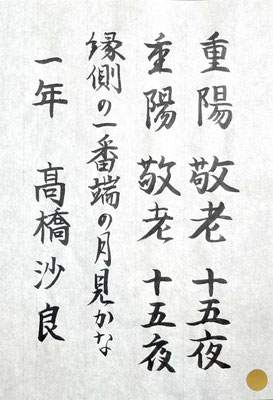 重陽 敬老 十五夜
重陽 敬老 十五夜
縁側の一番端の月見かな
一年 髙橋沙良